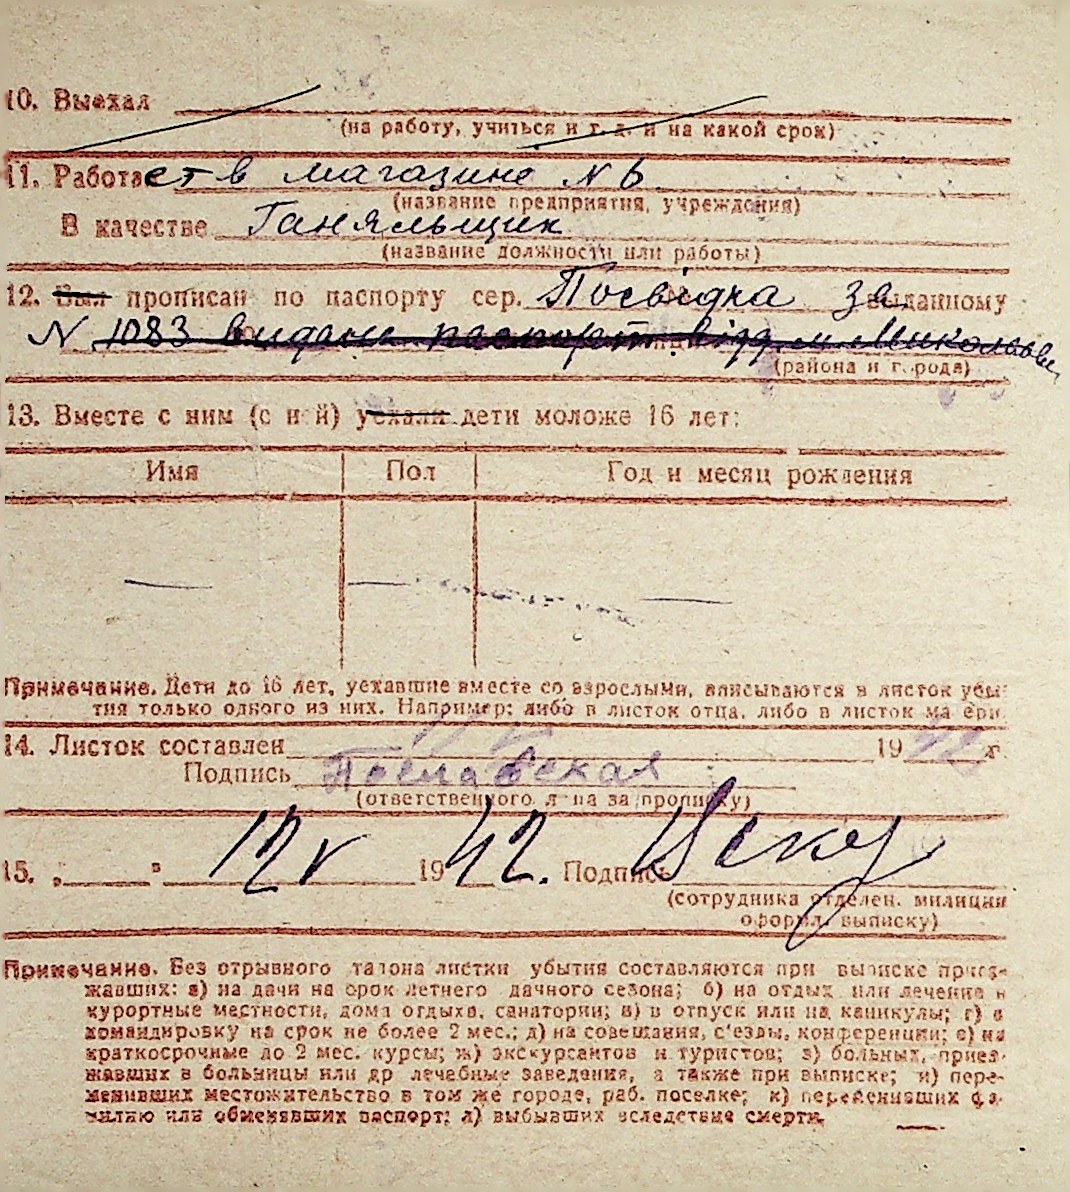 10. Выехал
(на работу, учиться и т. д. и на какой срок)
11. Работает в магазине N 6
(название предприятия, учреждения)
В качестве Ганяльщик
(название должности или работы)
12. Был прописан по паспорту сер. Посвідка за выданному
N 1083 видана паспорт. відд. м. Миколаєве
(района и города)
13. Вместе с ним (с ней) уехали дети моложе 16 лет:
Имя Пол Год и месяц рождения
Примечание. Дети до 16 лет, уехавшие вместе со взрослыми, вписываются в листок убы-
тия только одного из них. Например: либо в листок отца, либо в листок матери.
14. Листок составлен 1942 г.
Подпись
(ответственного лица за прописку)
15. „ “ 12 V 1942. Подпись
(сотрудника отделен. милиции
оформл. выписку)
Примечание. Без отрывного талона листки убытия составляются при выписке приез-
жавших: а) на дачи на срок летнего дачного сезона; б) на отдых или лечение в
курортные местности, дома отдыха, санатории; в) в отпуск или на каникулы; г) в
командировку на срок не более 2 мес.; д) на совещания, с'езды, конференции; е) на
краткосрочные до 2 мес. курсы; ж) экскурсантов и туристов; з) больных, приез-
жавших в больницы или др лечебные заведения, а также при выписке; и) пере-
менивших местожительство в том же городе, раб. поселке; к) переменивших фа-
милию или обменявших паспорт; л) выбывших вследствие смерти.